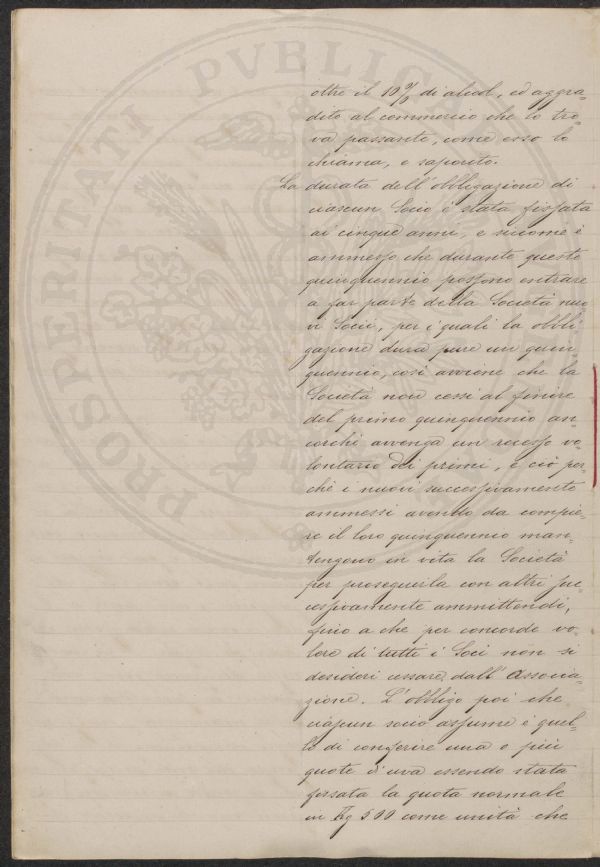 PROSPERITATI PVBLICA
oltre il 10% di alcol, ed aggra-
dito al commercio che lo tro-
va passante, come esso lo
chiama, e saporito.
La durata dell'obbligazione di
ciascun Socio è stata fissata
ai cinque anni, e siccome è
ammesso che durante questo
quinquennio possono entrare
a far parte della Società nuo
vi Socii, per i quali la obbli-
gazione dura pure un quin-
quennio, così avviene che la
Società non cessi al finire
del primo quinquennio an-
corchè avvenga un recesso vo-
lontario dei primi, e ciò per-
chè i nuovi successivamente
ammessi avendo da compie-
re il loro quinquennio man-
tengono in vita la Società
per proseguirla con altri suc-
cessivamente ammittendi,
fino a che per concorde vo-
lere di tutti i Soci non si
desideri cessare dall'Associa-
zione. L'obbligo poi che
ciascun socio assume è quel-
lo di conferire una o più
quote d'uva essendo stata
fissata la quota normale
in Kg 500 come unità che